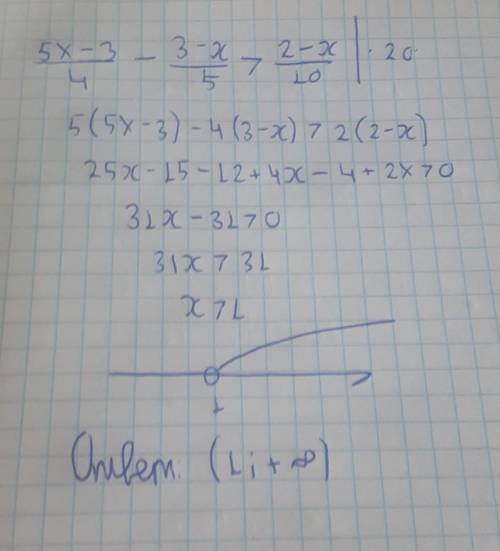 (5x-3)/4 - (3-x)/5 > (2-x)/10 | · 20
5(5x-3) - 4(3-x) > 2(2-x)
25x-15-12+4x-4+2x>0
31x-31>0
31x>31
x>1
1
Ответ. (1; +∞)